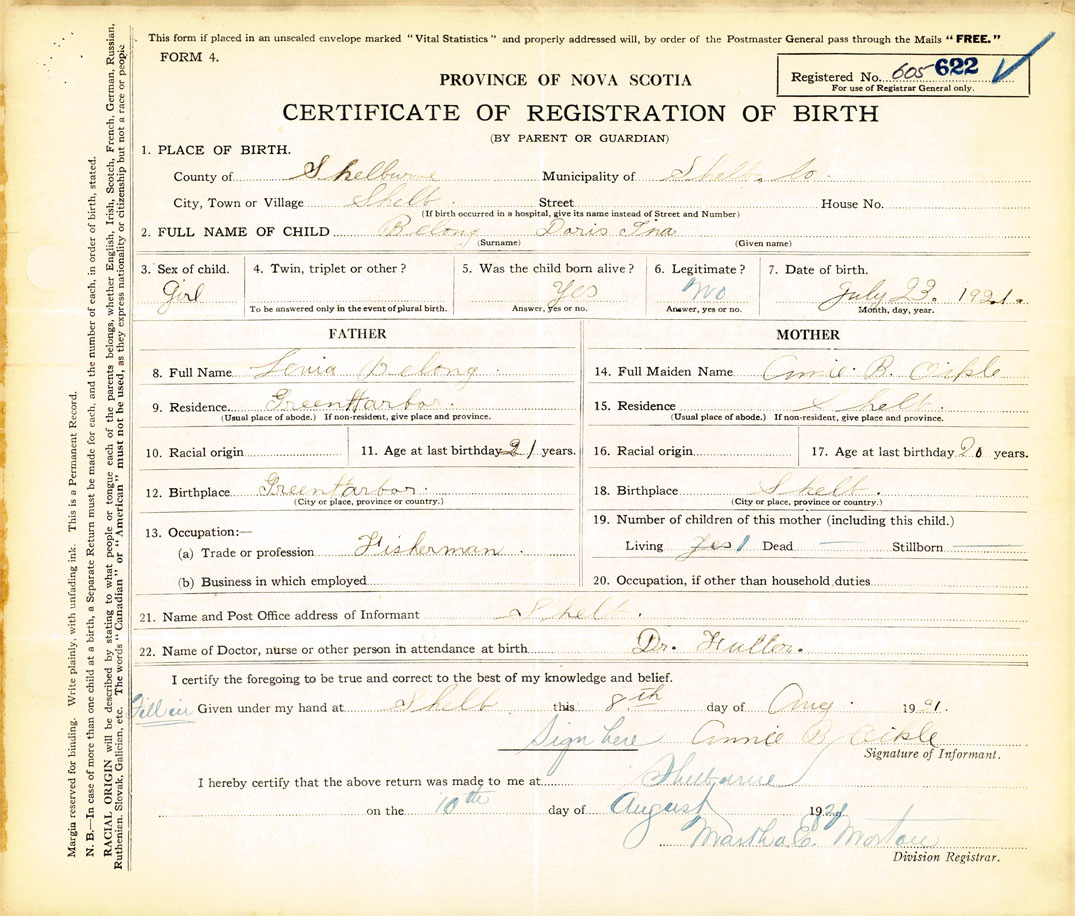 This form if placed in an unsealed envelope marked "Vital Statistics" and properly addressed will, by order of the Postmaster General pass through the Mails "FREE."
FORM 4.
Registered No. 605 622
For use of Registrar General only.
PROVINCE OF NOVA SCOTIA
CERTIFICATE OF REGISTRATION OF BIRTH
(BY PARENT OR GUARDIAN)
1. PLACE OF BIRTH.
County of Shelburne Municipality of Shelb. Co.
City, Town or Village Shelb. Street House No.
(If birth occurred in a hospital, give its name instead of Street and Number)
2. FULL NAME OF CHILD Belong Doris Ina
(Surname) (Given name)
3. Sex of child. 4. Twin, triplet or other? 5. Was the child born alive? 6. Legitimate? 7. Date of birth.
Girl Yes No July 23. 1921.
To be answered only in the event of plural birth. Answer, yes or no. Answer, yes or no. Month, day, year.
FATHER MOTHER
8. Full Name Belong 14. Full Maiden Name Annie B. Oikle
9. Residence Green Harbor. 15. Residence Shelb.
(Usual place of abode.) If non-resident, give place and province. (Usual place of abode.) If non-resident, give place and province.
10. Racial origin 11. Age at last birthday 21 years. 16. Racial origin 17. Age at last birthday 20 years.
12. Birthplace Green Harbor. 18. Birthplace Shelb.
(City or place, province or country.) (City or place, province or country.)
13. Occupation:— 19. Number of children of this mother (including this child.)
(a) Trade or profession Fisherman. Living yes 1 Dead — Stillborn —
(b) Business in which employed 20. Occupation, if other than household duties
21. Name and Post Office address of Informant Shelb.
22. Name of Doctor, nurse or other person in attendance at birth Dr. Fuller.
I certify the foregoing to be true and correct to the best of my knowledge and belief.
Fill in Given under my hand at Shelb this 8th day of Aug. 1921.
Sign here Annie B. Oikle
Signature of Informant.
I hereby certify that the above return was made to me at Shelburne
on the 10th day of August 1921
Martha E. Morton
Division Registrar.
Margin reserved for binding. Write plainly, with unfading ink. This is a Permanent Record.
N. B.—In case of more than one child at a birth, a Separate Return must be made for each, and the number of each, in order of birth, stated.
RACIAL ORIGIN will be described by stating to what people or tongue each of the parents belongs, whether English, Irish, Scotch, French, German, Russian,
Ruthenian, Slovak, Galician, etc. The words "Canadian" or "American" must not be used, as they express nationality or citizenship but not a race or people